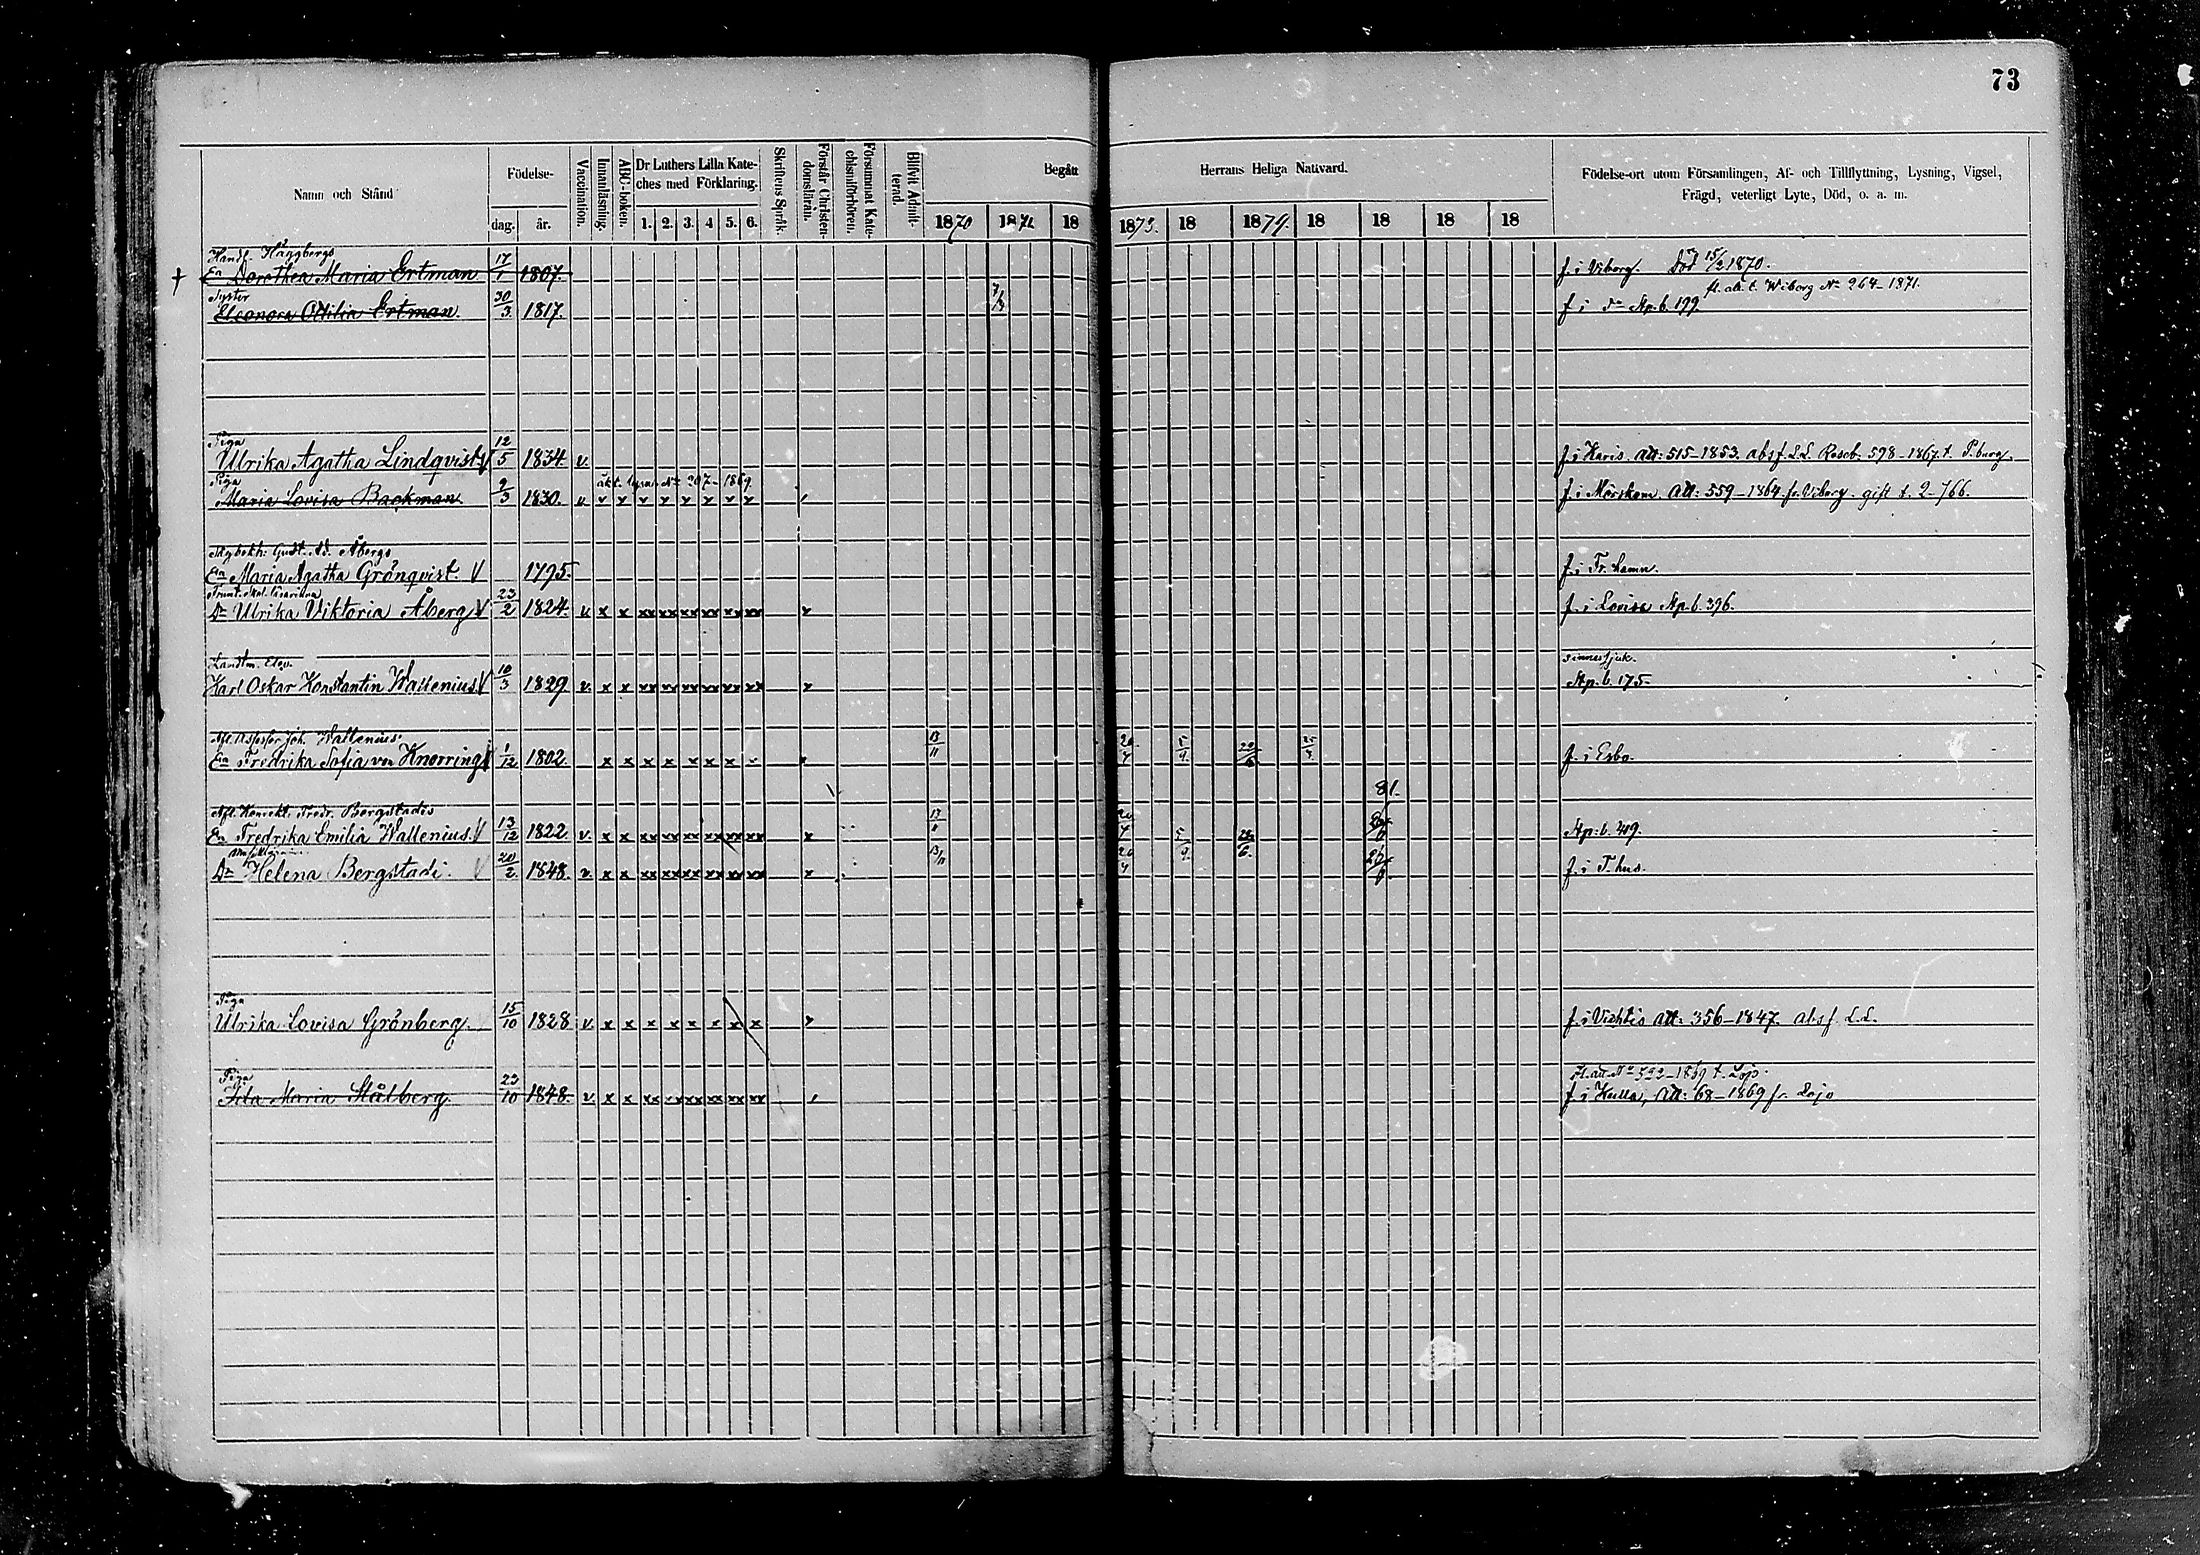 73
Namn och Stånd
Födelse-
dag.
år.
Vaccination.
Innanläsning.
ABC-boken.
Dr Luthers Lilla Kate-
ches med Förklaring.
1. 2. 3. 4 5. 6.
Skriftens Språk.
Förstår Christen-
domsläran.
Försummat Kate-
chismiförhören.
Blifvit Admit-
terad.
Begått Herrans Heliga Nattvard.
1870 1872 18 1873. 18 1874. 18 18 18 18
Födelse-ort utom Församlingen, Af- och Tillflyttning, Lysning, Vigsel,
Frägd, veterligt Lyte, Död, o. a. m.
Handl. Häggbergs
† Ea Dorothea Maria Ertman 17/1 1807. f. i Viborg. Död 15/2 1870.
Syster fl. att. t. Wiborg No 264-1871.
Eleonora Ottilia Ertman 30/3 1817. f. i do Kp. b. 199.
Piga
Ulrika Agatha Lindqvist V 12/5 1834. v. f. i Karis. Att: 515-1853. absf. L.L. Roseb. 598-1867. t. P.burg.
Piga No 207-1869
Maria Lovisa Backman 9/3 1830. v v v v v v v v v f. i Mörskom. Att: 559-1864 fr. Viborg. gift t. 2-766.
Gust. Ad. Åbergs
Ea Maria Agatha Grönqvist. V 1795. f. i Fr. hamn.
Dr Ulrika Viktoria Åberg V 23/2 1824. v x x xx xx xx xx xx xx x f. i Lovisa Kp. b. 396.
Landtm. Elev. Sinnessjuk.
Karl Oskar Konstantin Wallenius V 10/3 1829 v. x x xx xx xx xx xx xx x Kp. b. 175.
Afl. Assessor Joh. Wallenius
Ea Fredrika Sofia von Knorring V 1/12 1802. x x x x x x x x x 13/11 20/4 5/9. 22/6 25/5 f. i Esbo.
81.
Afl. Konrekt. Fredr. Bergstadis
Ea Fredrika Emilia Wallenius. V 13/12 1822 v. x x xx xx xx xx xx xx x 13/11 20/4 5/9. Kp. b. 409.
Dr Helena Bergstadi. V 20/2 1848. v. x x xx xx xx xx xx xx x 13/11 20/4 f. i T.hus.
Piga
Ulrika Lovisa Grönberg. 15/10 1828 v. x x x x x x x x x f. i Vichtis Att: 356-1847. absf. L.L.
Piga Fl. att. No 532-1869 t. Lojo.
Ida Maria Stålberg 23/10 1848. v. x x xx xx xx xx xx xx f. i Kulla, Att: 68-1869 fr. Lojo